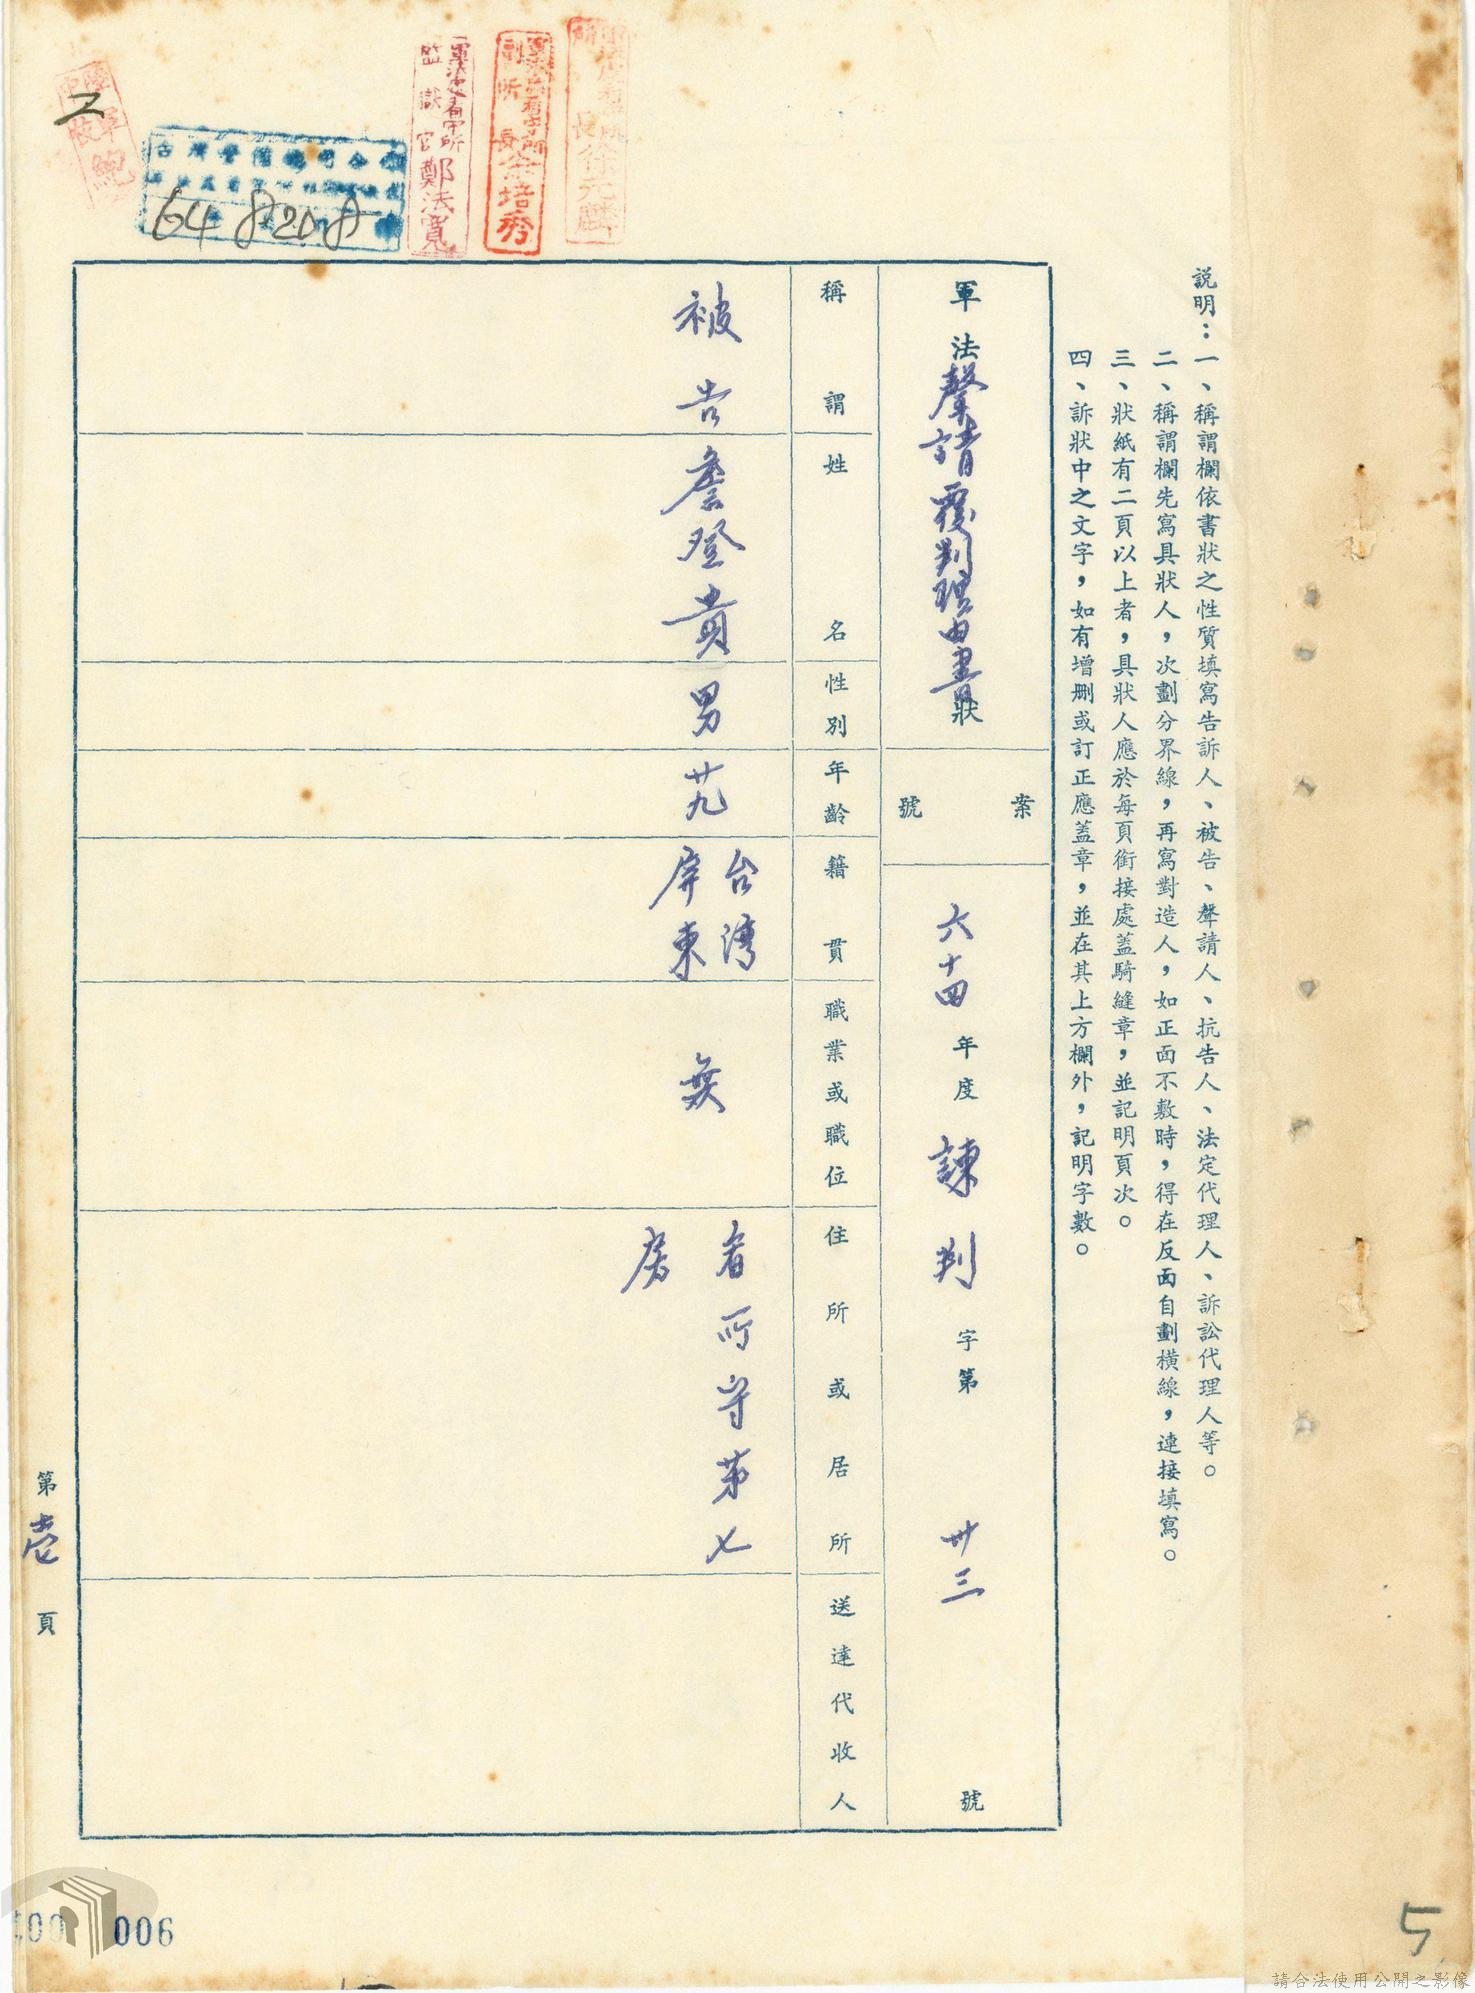 說明：一、稱謂欄依書狀之性質填寫告訴人、被告、聲請人、抗告人、法定代理人、訴訟代理人等。
二、稱謂欄先寫具狀人，次劃分界線，再寫對造人，如正面不敷時，得在反面自劃橫線，連接填寫。
三、狀紙有二頁以上者，具狀人應於每頁銜接處蓋騎縫章，並記明頁次。
四、訴狀中之文字，如有增刪或訂正應蓋章，並在其上方欄外，記明字數。
軍法聲請覆判理由書狀
案號
六十四年度諫判字第卅三號
稱謂
姓名
性別
年齡
籍貫
職業或職位
住所或居所
送達代收人
被告
詹登貴
男
廿九
台灣
屏東
無
看所守第七
房
第壹頁
所長徐元麟
副所長余培秀
軍法處看守所
監獄官鄭法寬
64 8 20 8
006
5
請合法使用公開之影像